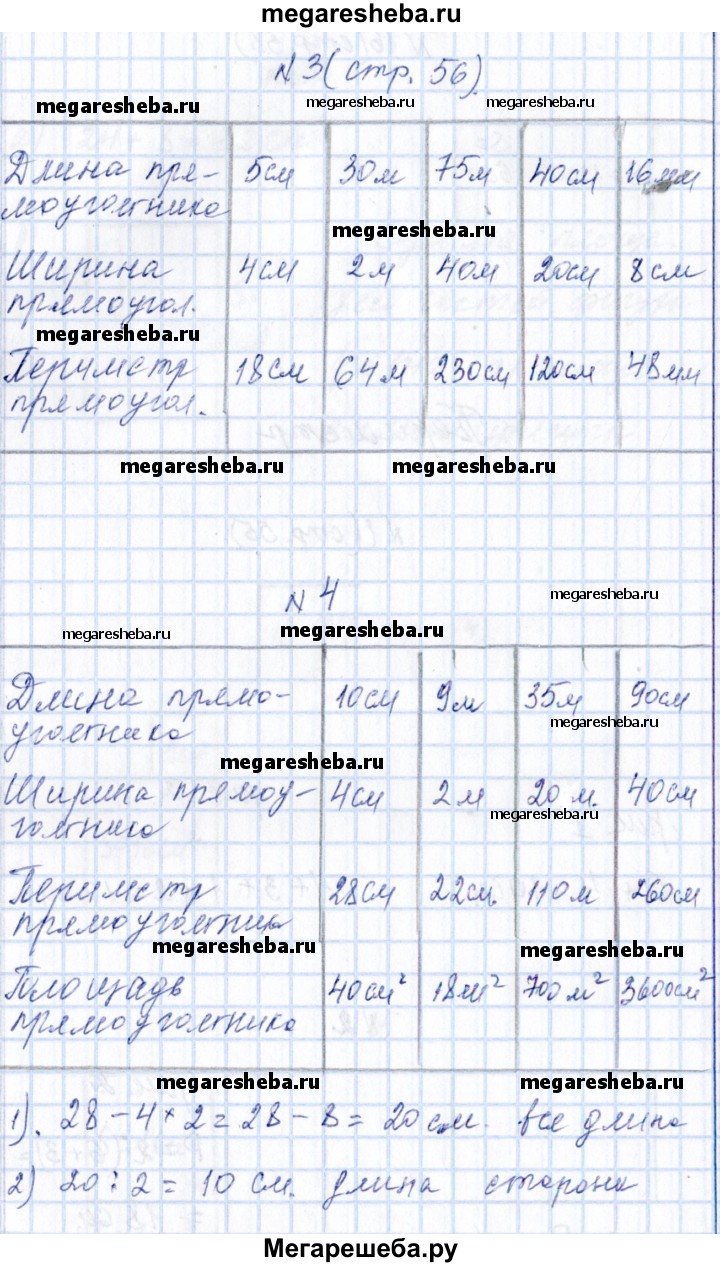 megaresheba.ru
N 3 (стр. 56).
megaresheba.ru megaresheba.ru megaresheba.ru
Длина пря- 5см 30м 75м 40см 16мм
моугольника
megaresheba.ru
Ширина 4см 2м 40м 20см 8см
прямоугол.
megaresheba.ru
Периметр 18см 64м 230см 120см 48мм
прямоугол.
megaresheba.ru megaresheba.ru
N 4
megaresheba.ru
megaresheba.ru megaresheba.ru
Длина прямо- 10см 9м 35м 90см
угольника
megaresheba.ru
megaresheba.ru
Ширина прямоу- 4см 2м 20м. 40см
гольника
megaresheba.ru
Периметр 28см 22см. 110м 260см
прямоугольник
megaresheba.ru megaresheba.ru
Площадь 40см² 18м² 700м² 3600см²
прямоугольника
megaresheba.ru megaresheba.ru
1). 28 - 4 × 2 = 28 - 8 = 20 см. все длина
2) 20 : 2 = 10 см. длина стороны
Мегарешеба.ру